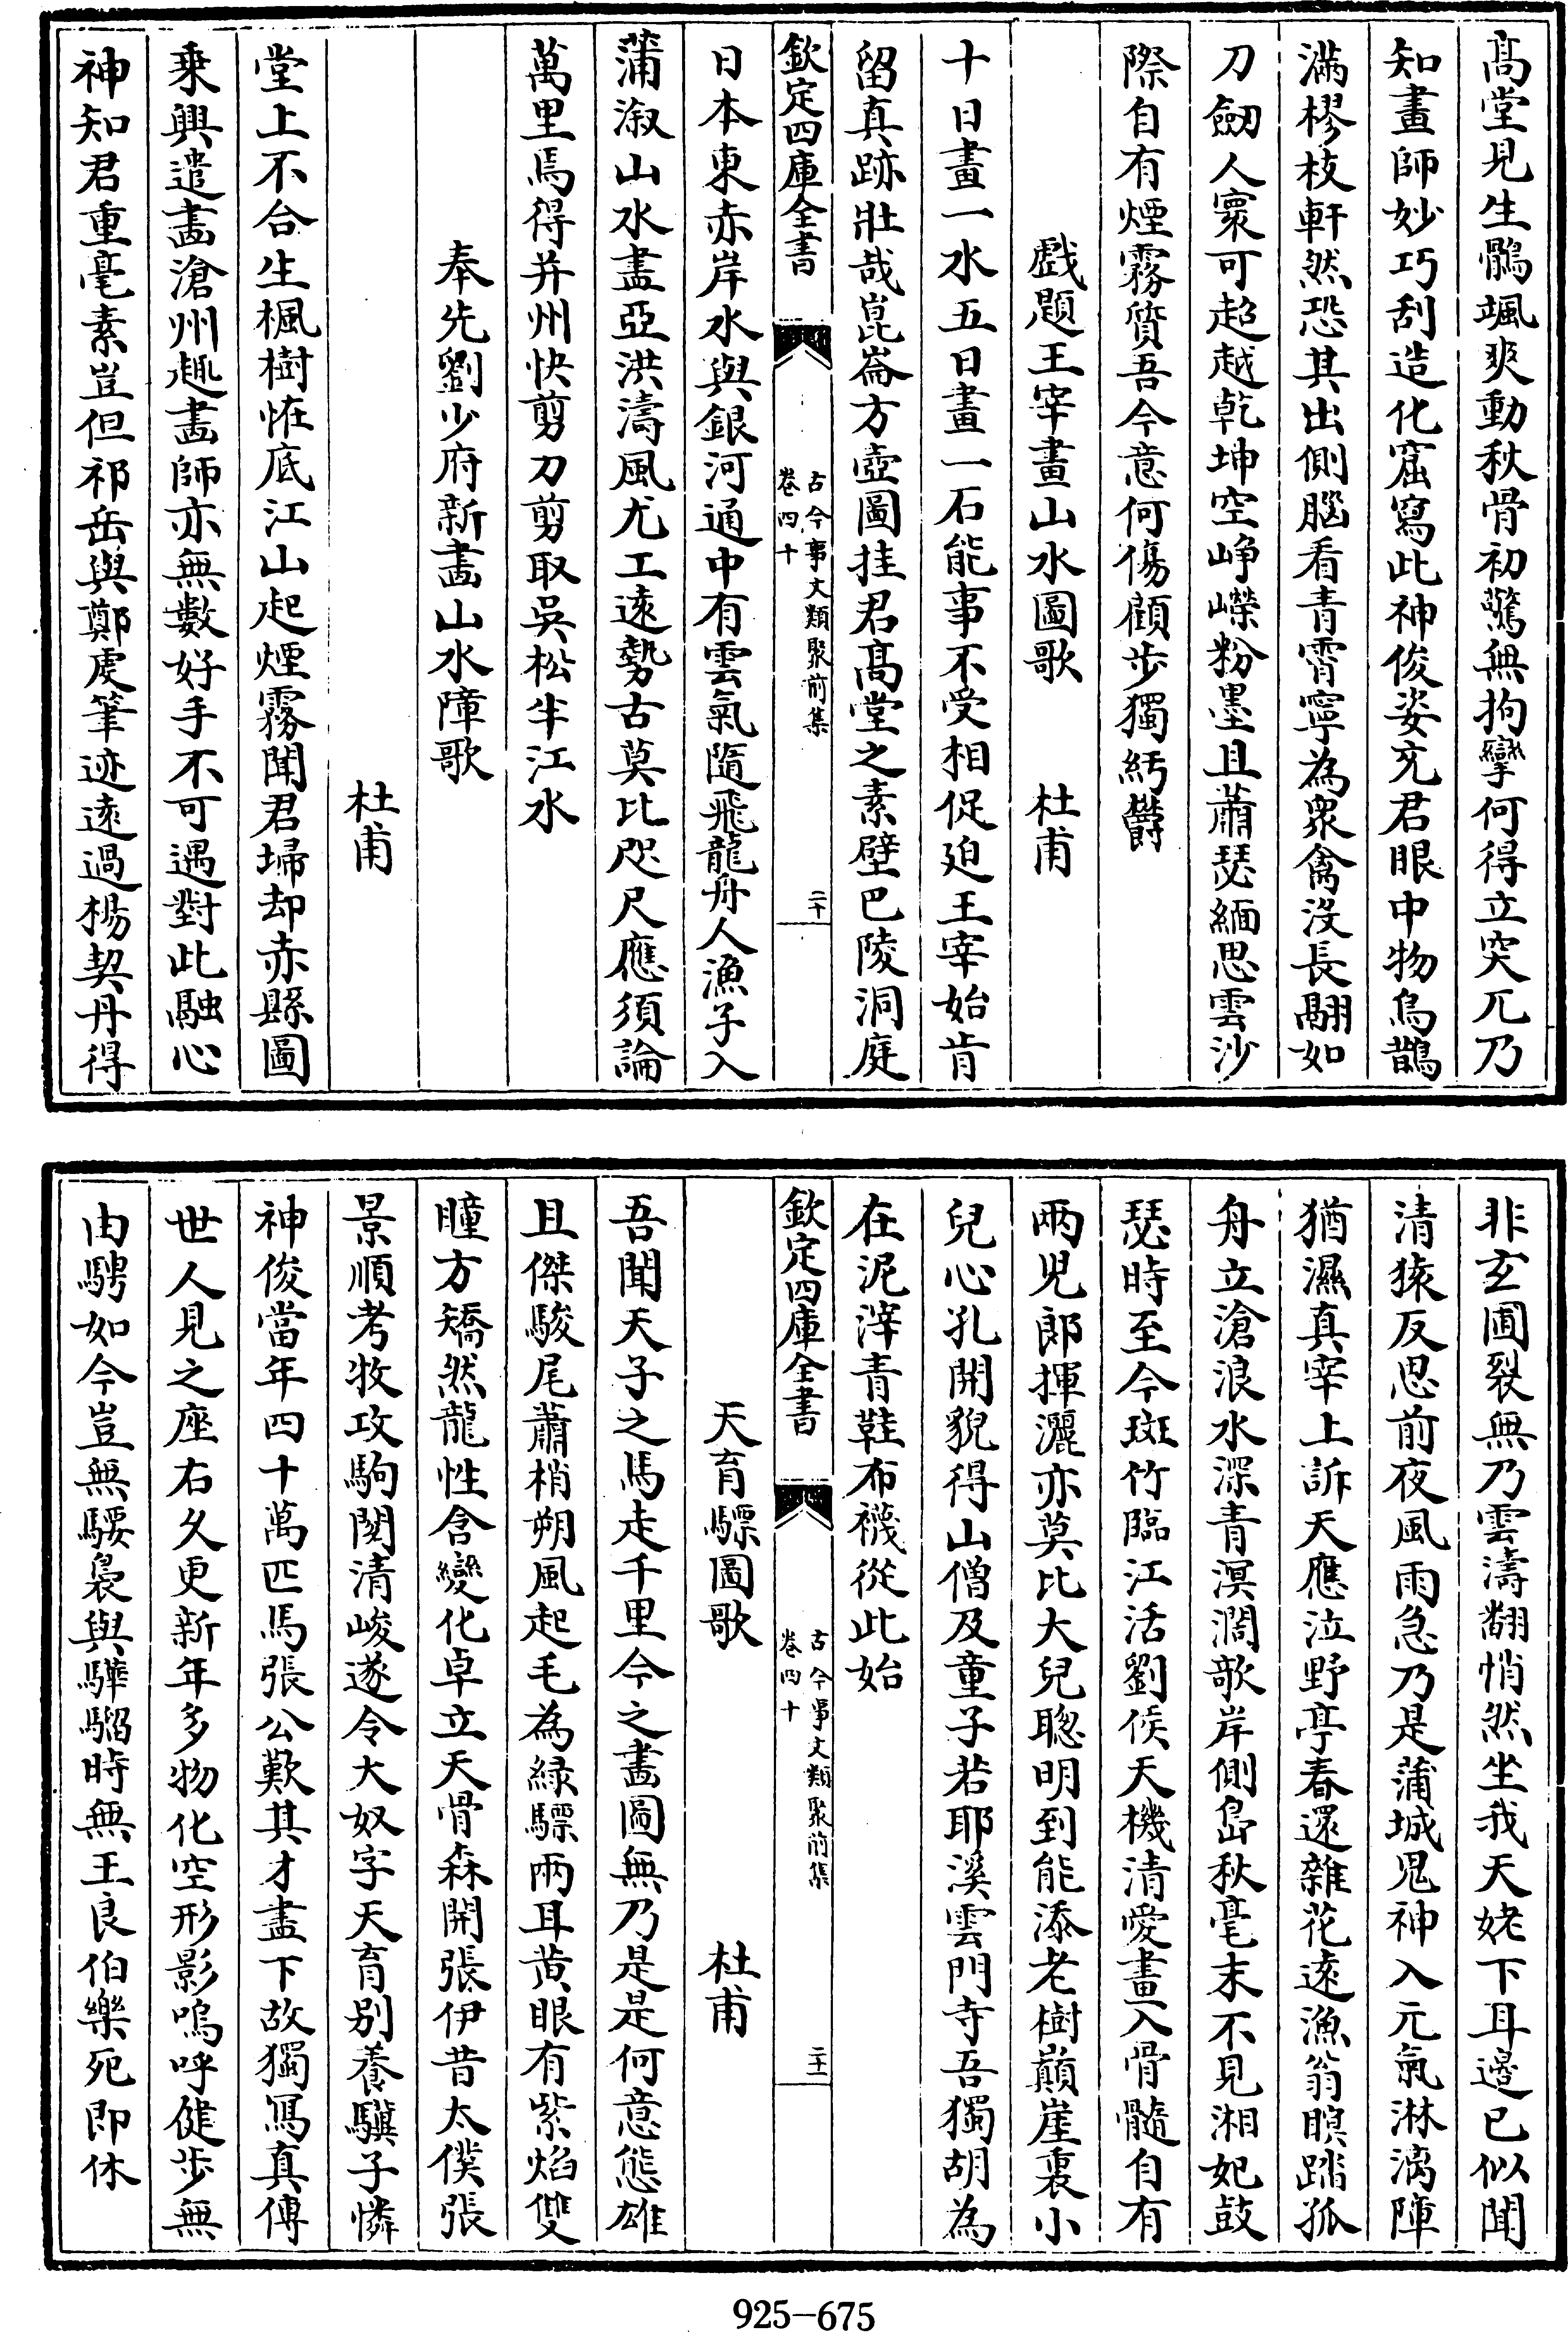 髙堂見生鶻颯爽動秋骨初驚無拘攣何得立突兀乃
知畫師妙巧刮造化窟寫此神俊姿充君眼中物烏鵲
滿樛枝軒然恐其出側腦看青霄寧為衆禽沒長翮如
刀劒人寰可超越乾坤空崢嶸粉墨且蕭瑟緬思雲沙
際自有煙霧質吾今意何傷顧步獨紆鬱
戲題王宰畫山水圖歌　杜甫
十日畫一水五日畫一石能事不受相促迫王宰始肯
留真跡壯哉崑崙方壺圖挂君髙堂之素壁巴陵洞庭
欽定四庫全書
古今事文類聚前集
卷四十
二十
日本東赤岸水與銀河通中有雲氣隨飛龍舟人漁子入
蒲溆山水盡亞洪濤風尤工逺勢古莫比咫尺應須論
萬里焉得并州快剪刀剪取吳松半江水
奉先劉少府新畫山水障歌
杜甫
堂上不合生楓樹恠底江山起煙霧聞君埽却赤縣圖
乗興遣畫滄州趣畫師亦無數好手不可遇對此融心
神知君重毫素豈但祁岳與鄭虔筆迹逺過楊契丹得
非玄圃裂無乃雲濤翻悄然坐我天姥下耳邊已似聞
清猿反思前夜風雨急乃是蒲城鬼神入元氣淋漓障
猶濕真宰上訴天應泣野亭春還雜花逺漁翁暝踏孤
舟立滄浪水深青溟濶欹岸側島秋毫末不見湘妃鼓
瑟時至今斑竹臨江活劉侯天機清愛畫入骨髓自有
兩兒郎揮灑亦莫比大兒聰明到能添老樹巔崖裏小
兒心孔開貌得山僧及童子若耶溪雲門寺吾獨胡為
在泥滓青鞋布襪從此始
欽定四庫全書
古今事文類聚前集
卷四十
二十一
天育驃圖歌　杜甫
吾聞天子之馬走千里今之畫圖無乃是是何意態雄
且傑駿尾蕭梢朔風起毛為緑驃兩耳黄眼有紫焰雙
瞳方矯然龍性含變化卓立天骨森開張伊昔太僕張
景順考牧攻駒閱清峻遂令大奴字天育别養驥子憐
神俊當年四十萬匹馬張公歎其才盡下故獨寫真傳
世人見之座右久更新年多物化空形影嗚呼健步無
由騁如今豈無騕褭與驊騮時無王良伯樂死即休
925-675